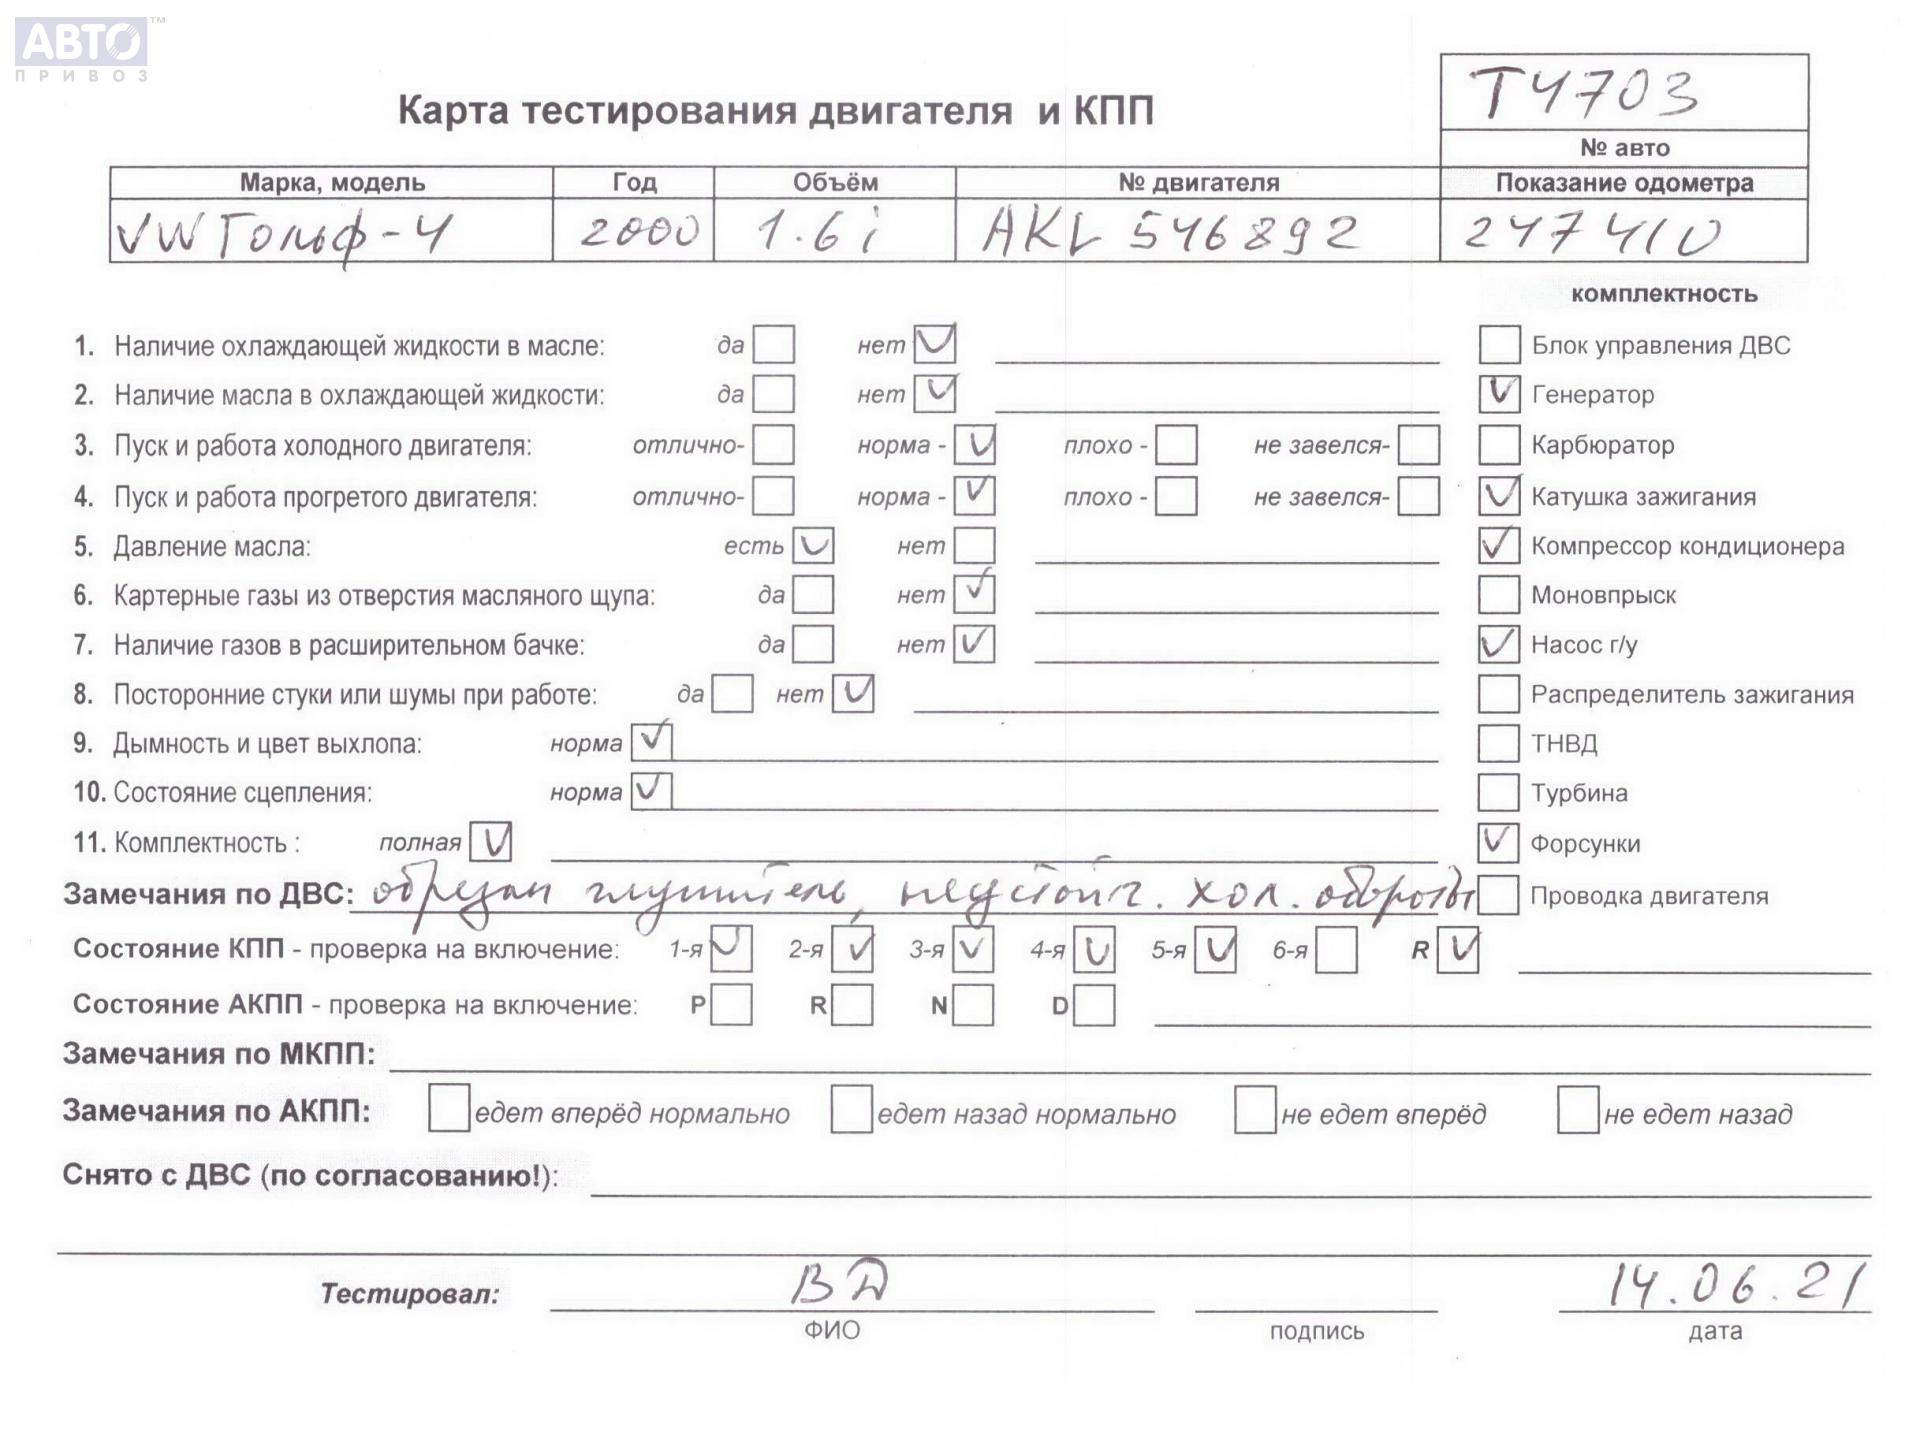 АВТО™
ПРИВОЗ
Т4703
Карта тестирования двигателя и КПП
№ авто
Марка, модель Год Объём № двигателя Показание одометра
VW Гольф-4 2000 1.6i AKL 546892 247410
комплектность
1. Наличие охлаждающей жидкости в масле: да нет Блок управления ДВС
2. Наличие масла в охлаждающей жидкости: да нет Генератор
3. Пуск и работа холодного двигателя: отлично- норма - плохо - не завелся- Карбюратор
4. Пуск и работа прогретого двигателя: отлично- норма - плохо - не завелся- Катушка зажигания
5. Давление масла: есть нет Компрессор кондиционера
6. Картерные газы из отверстия масляного щупа: да нет Моновпрыск
7. Наличие газов в расширительном бачке: да нет Насос г/у
8. Посторонние стуки или шумы при работе: да нет Распределитель зажигания
9. Дымность и цвет выхлопа: норма ТНВД
10. Состояние сцепления: норма Турбина
11. Комплектность : полная Форсунки
Замечания по ДВС: обрезан глушитель, неустойч. хол. обороты Проводка двигателя
Состояние КПП - проверка на включение: 1-я 2-я 3-я 4-я 5-я 6-я R
Состояние АКПП - проверка на включение: P R N D
Замечания по МКПП:
Замечания по АКПП: едет вперёд нормально едет назад нормально не едет вперёд не едет назад
Снято с ДВС (по согласованию!):
Тестировал: ВД 14.06.21
ФИО подпись дата